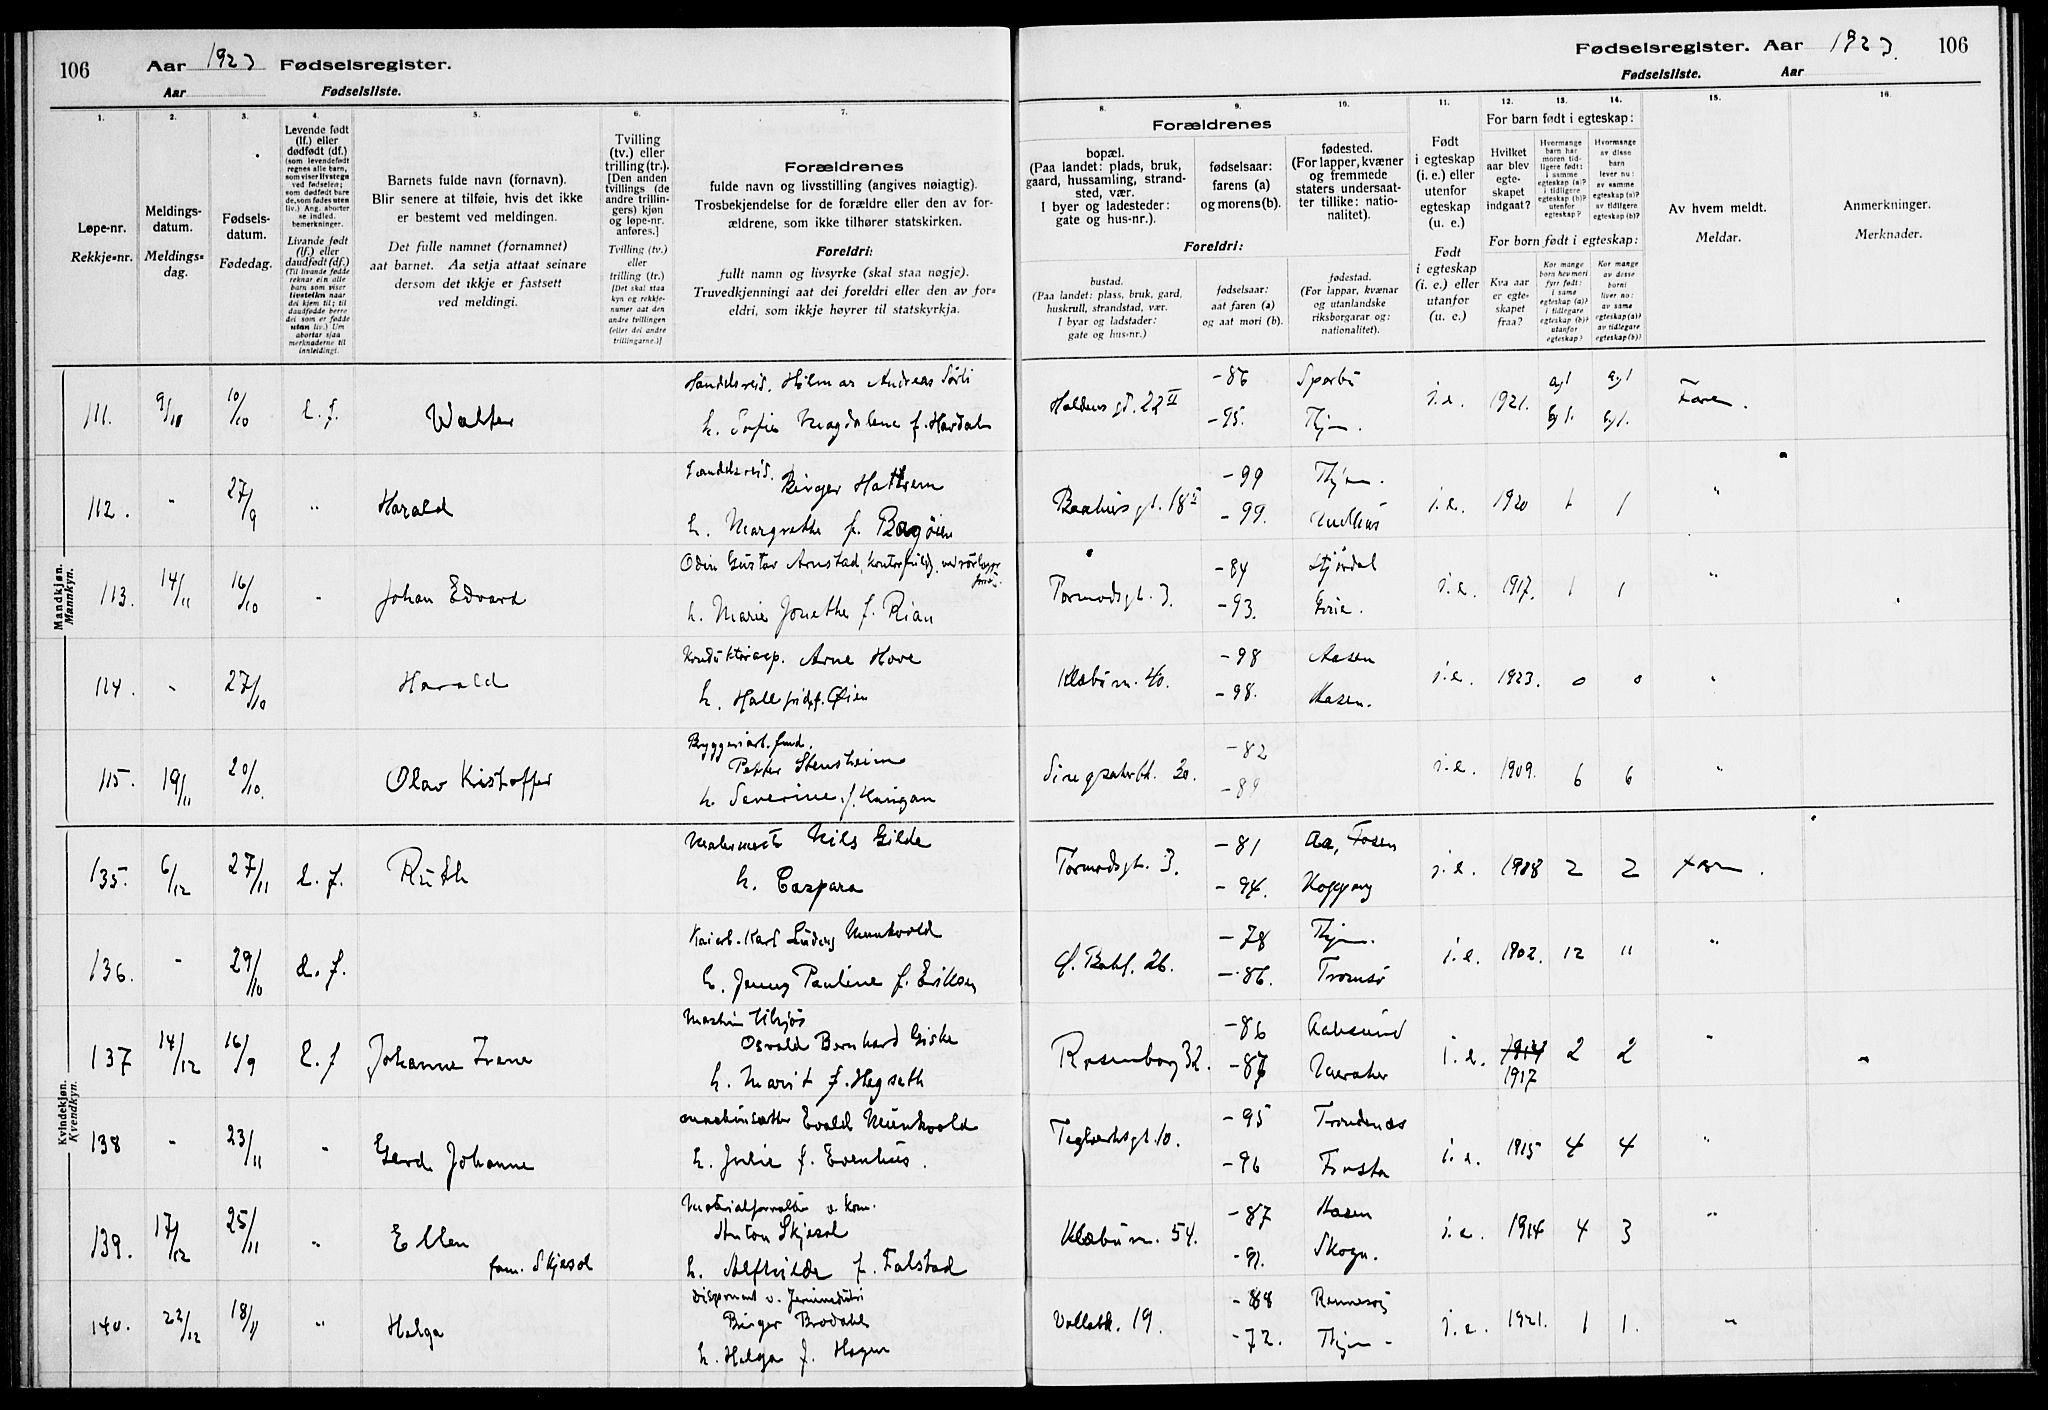 106 Aar 1923 Fødselsregister.
Aar Fødselsliste.
Fødselsregister. Aar 1923. 106
Fødselsliste. Aar
1. 2. 3. 4. 5. 6. 7.
Løpe-nr.
Rekkje-nr.
Meldings-
datum.
Meldings-
dag.
Fødsels-
datum.
Fødedag.
Levende født
(lf.) eller
dødfødt (df.)
(som levendefødt
regnes alle barn,
som viser livstegn
ved fødselen;
som dødfødt bare
de, som fødes uten
liv.) Ang. aborter
se indled.
bemerkninger.
Livande født
(lf.) eller
daudfødt (df.)
(Til livande fødde
reknar ein alle
barn som viser
livsteikn naar
dei kjem til; til
daudfødde berre
dei som er fødde
utan liv.) Um
abortar sjaa
merknaderne til
innleidingi.
Barnets fulde navn (fornavn).
Blir senere at tilføie, hvis det ikke
er bestemt ved meldingen.
Det fulle namnet (fornamnet)
aat barnet. Aa setja attaat seinare
dersom det ikkje er fastsett
ved meldingi.
Tvilling
(tv.) eller
trilling (tr.).
[Den anden
tvillings (de
andre trillin-
gers) kjøn
og løpe-nr.
anføres.]
Tvilling (tv.)
eller
trilling (tr.)
[Det skal staa
kyn og rekkje-
numer aat den
andre tvillingen
(eller dei andre
trillingarne.)]
Forældrenes
fulde navn og livsstilling (angives nøiagtig).
Trosbekjendelse for de forældre eller den av for-
ældrene, som ikke tilhører statskirken.
Foreldri:
fullt namn og livsyrke (skal staa nøgje).
Truvedkjenningi aat dei foreldri eller den av for-
eldri, som ikkje høyrer til statskyrkja.
8. 9. 10. 11. 12. 13. 14. 15. 16.
Forældrenes
bopæl.
(Paa landet: plads, bruk,
gaard, hussamling, strand-
sted, vær.
I byer og ladesteder:
gate og hus-nr.).
fødselsaar:
farens (a)
og morens (b).
fødested.
(For lapper, kvæner
og fremmede
staters undersaat-
ter tillike: natio-
nalitet).
Foreldri:
bustad.
(Paa landet: plass, bruk, gard,
huskrull, strandstad, vær.
I byar og ladstader:
gate og hus-nr.)
fødselsaar:
aat faren (a)
og aat mori (b).
fødestad.
(For lappar, kvænar
og utanlandske
riksborgarar og:
nationalitet).
Født
i egteskap
(i. e.) eller
utenfor
egteskap
(u. e.)
Født
i egteskap
(i. e.) eller
utanfor
(u. e.)
For barn født i egteskap:
Hvilket
aar blev
egte-
skapet
indgaat?
Hvormange
barn har
moren tid-
ligere født:
i samme
egteskap (a)?
i tidligere
egteskap (b)?
utenfor
egteskap?
Hvormange
av disse
barn
lever nu:
av samme
egteskap (a)?
av tidligere
egteskap (b)?
For born født i egteskap:
Kva aar
er egte-
skapet
fraa?
Kor mange
born hev mori
fyrr født:
i same
egteskap (a)?
i tidlegare
egteskap (b)?
utanfor
egteskap?
Kor mange
av desse
borni
liver no:
av same
egteskap (a)?
av tidlegare
egteskap (b)?
Av hvem meldt.
Meldar.
Anmerkninger.
Merknader.
Mandkjøn.
Mannkyn.
111. 9/11 10/10 l. f. Walter Handelsreis. Hilmar Andreas Sørli -86 Sparbu i.e. 1921. a)1 a)1 Faren.
h. Sofie Magdalene f. Hardal -95. Thjem. b)1. b)1.
112. " 27/9 " Harald Handelsreis. Birger Hattrem -99 Thjem. i.e. 1920 1 1 "
h. Margrethe f. Bagøien -99.
113. 14/11 16/10 " Johan Edvard Odin Gustav Arnstad Tormodsgt. 3. -84 Stjørdal i.e. 1917. 1 1 "
h. Marie Jonethe f. Rian -93.
114. " 27/10 Harald Konduktørasp. Arne Hove Klæbuv. 40. -98 Aasen i.e. 1923. 0 0 "
h. Hallfrid f. Øien -98. Aasen.
115. 19/11 20/10. Olav Kistoffer Bryggeriarb. fmd.
Petter Stensheim -82 i.e. 1909. 6 6 "
h. Severine f. -89
Kvindekjøn.
Kvendkyn.
135. 6/12 27/11 l. f. Ruth Malermester Nils Gilde Tormodsgt. 3. -81 Aa, Fosen i.e. 1908 2 2 Faren.
h. Caspara -94. Koppang
136. " 29/10 l. f. Kaiarb. Karl Ludvig Munkvold 26. -78 Thjem. i.e. 1902. 12 11 "
h. Jenny Pauline f. Eriksen -86. Tromsø
137 14/12 16/9 l. f Johanne Irene Maskin
Osvald Bernhard Giske Rosenborg 32. -86 Aalesund i.e. 1917 2 2 "
h. Marit f. Hegseth Meraker
138 " 23/11 " Gerd Johanne Maskinsætter Evald Munkvold Teglverksgt. 10. -95 Trondenes i.e. 1915 4 4 "
h. Julie f. Evenhus. -96 Frosta
139. 17/12 25/11 " Ellen Materialforvalter v. kom.
Anton Skjesol Klæbuv. 54. -87 Aasen i.e. 1914 4 3 "
fam. Skjesol h. Alfhilde f. Falstad -91. Skogn.
140. 22/12 18/11 " Helga Disponent v. Jernindustri
Birger Brodahl Vollabk. 19. -88 i.e. 1921. 1 1. "
h. Helga f. Hagen -72. Thjem